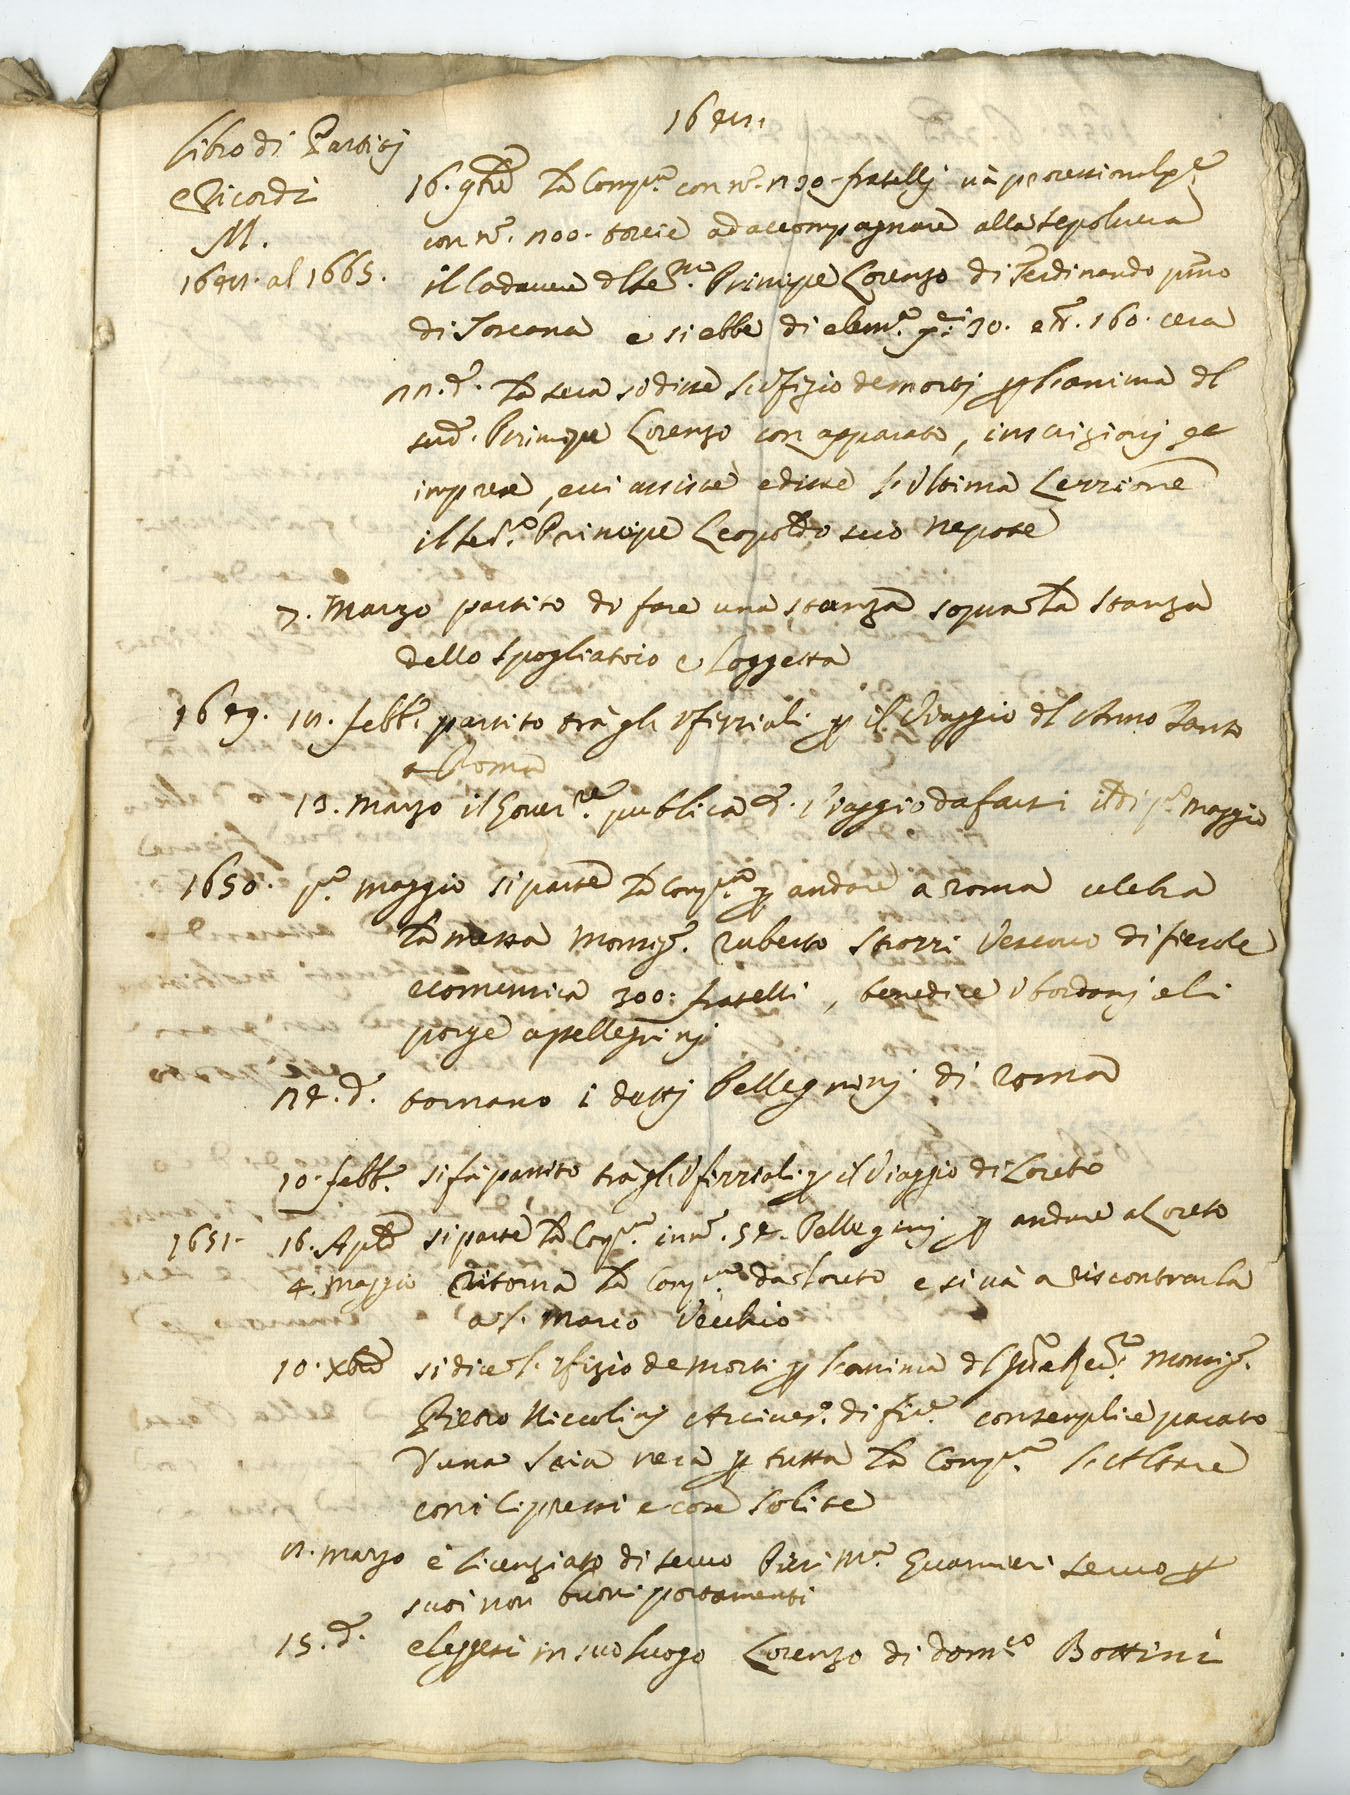 1648.
Libro di Partitj
e Ricordi
M.
1648. al 1665.
16. 9bre La Compa. con no. 230 fratellj và procession.te
con no. 200. torcie ad accompagnare alla sepoltura
il Cadavere del Ser.mo Principe Lorenzo di Ferdinando primo
di Toscana e si ebbe di elem.a 30. e 160. cera
22. d.o La sera si disse l'ufizio de morti p l'anima del
sud.o Principe Lorenzo con apparato, inscrizioni ee
imprese, e vi assiste e disse l'ultima Lezzione
il Ser.o Principe Leopoldo suo Nepote
7. Marzo partito di fare una stanza sopra la stanza
dello spogliatoio e Loggetta
1649. 18. febb. partito tra gli Ufizziali p il Viaggio dl Anno Santo
a Roma
13. Marzo il Gover.re publica d.o Viaggio da farsi il di p.o Maggio
1650. p.o Maggio si parte la Comp.a p andare a Roma celebra
la messa Monsig. Ruberto Strozzi Vescovo di fiesole
e comunica 300: fratelli, benedice i bordonj e li
porge a pellegrinj
24. d.o tornano i dettj Pellegrinj di Roma
10. febb. si fà partito tra gli Ufizziali p il Viaggio di Loreto
1651. 16. Aple si parte la Comp.a in no. 54. Pellegrinj p andare a Loreto
4. Maggio ritorna la Comp.a da Loreto e si và a riscontrarla
a S. Marco Vecchio
10. Xbre si dice l'ufizio de Morti p l'anima dl Monsig.
Pietro Niccolinj Arcives.o di fir.e con semplice parato
d'una Saia nera p tutta la Comp.a l'Altare
con i Cipressi e cose solite
8. Marzo è licenziato di servo Pier M.a Guarnieri servo p
suoi non buoni portamenti
15. d.o eleggesi in suo luogo Lorenzo di Dom.co Bottini